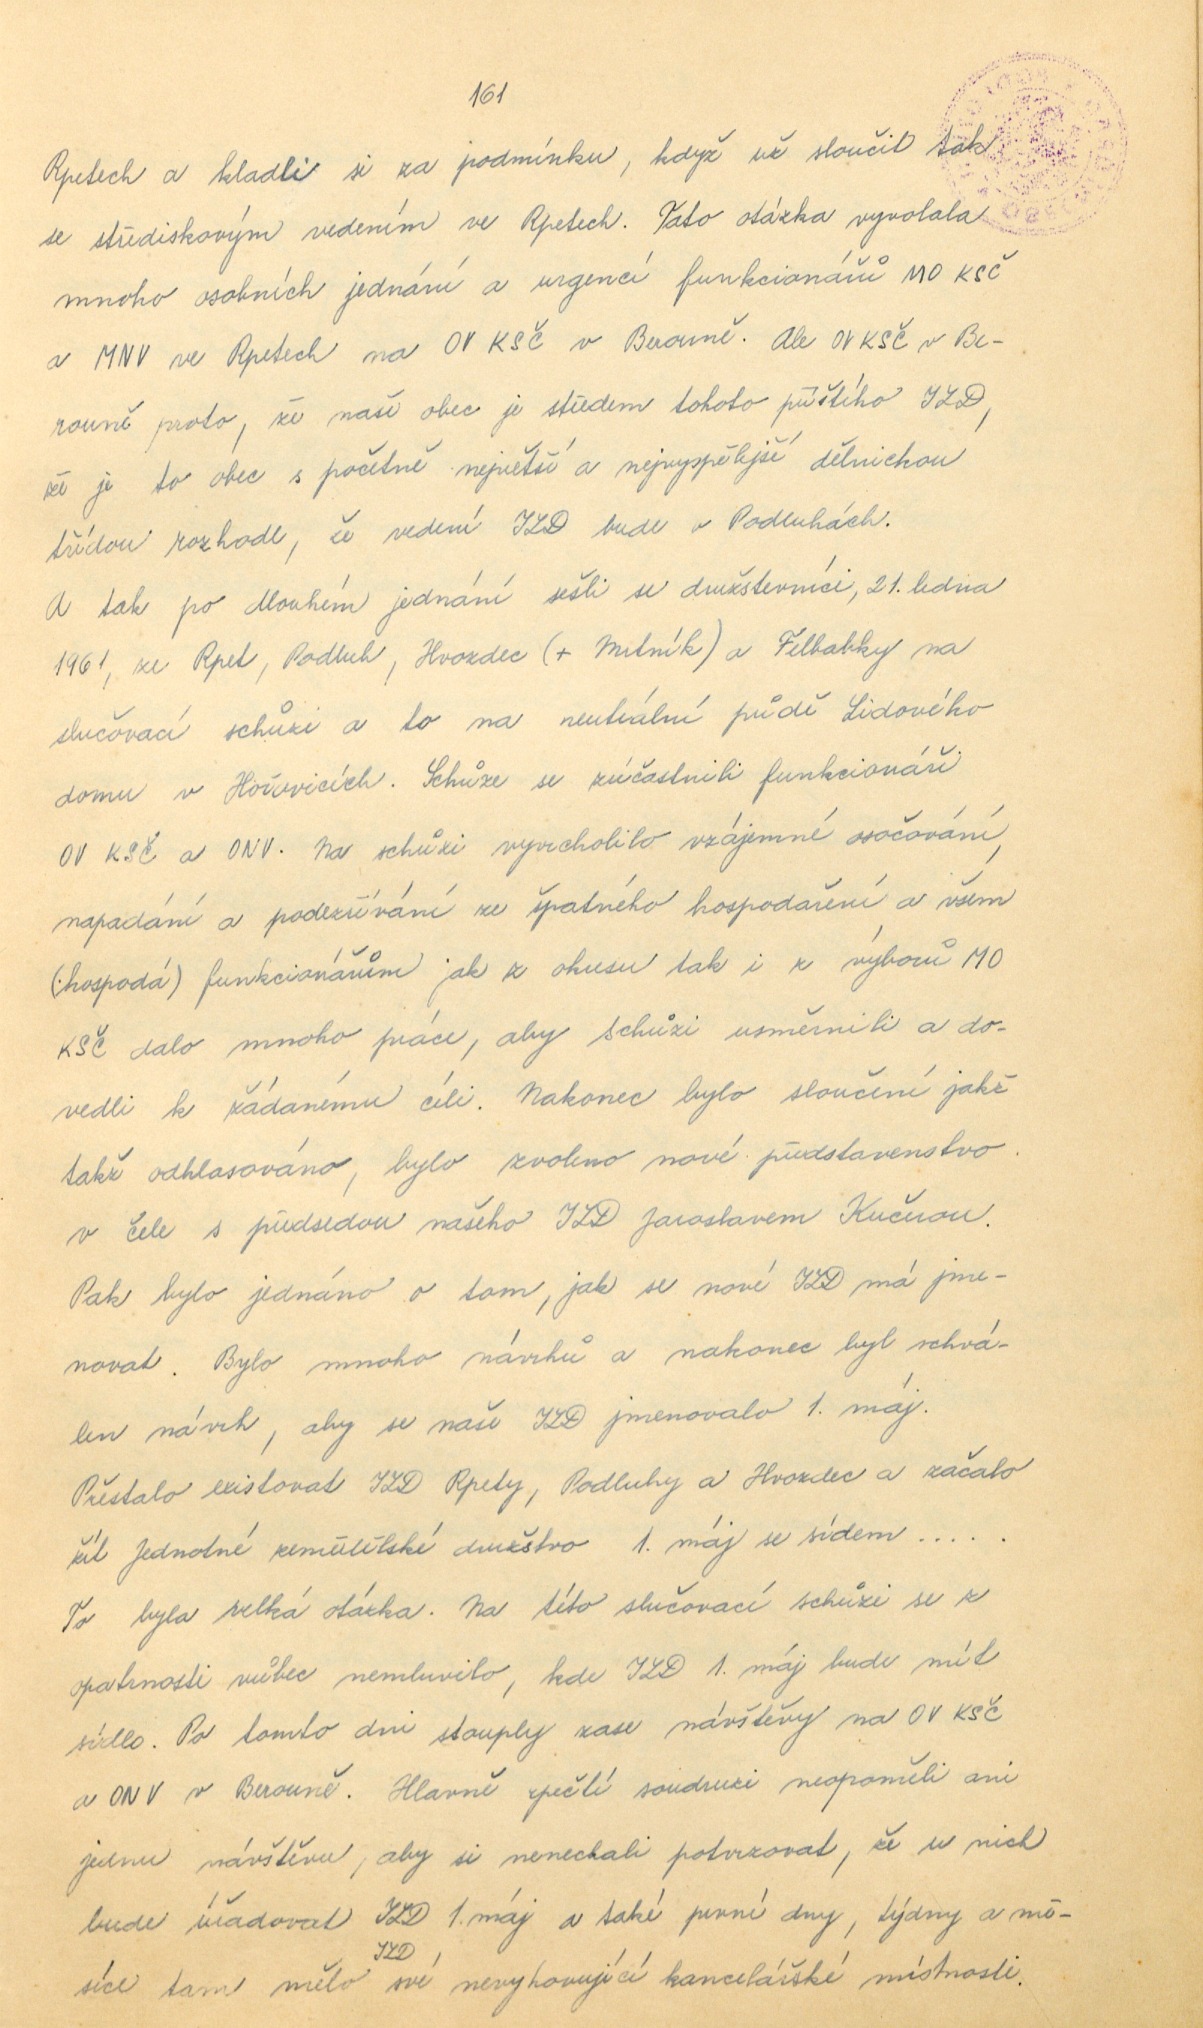 161
Rpetech a kladli si za podmínku, když už sloučit tak
se střediskovým vedením ve Rpetech. Tato otázka vyvolala
mnoho osobních jednání a urgencí funkcionářů MO KSČ
a MNV ve Rpetech na OV KSČ v Berouně. Ale OV KSČ v Be-
rouně proto, že naše obec je středem tohoto příštího JZD,
že je to obec s početně největší a nejvyspělejší dělnickou
třídou rozhodl, že vedení JZD bude v Podluhách.
A tak po dlouhém jednání sešli se družstevníci, 21. ledna
1961, ze Rpet, Podluh, Hvozdec (+ Mrtník) a Felbabky na
slučovací schůzi a to na neutrální půdě Lidového
domu v Hořovicích. Schůze se zúčastnili funkcionáři
OV KSČ a ONV. Na schůzi vyvrcholilo vzájemné osočování,
napadání a podezřívání ze špatného hospodaření a všem
(:hospodá) funkcionářům jak z okresu tak i z výborů MO
KSČ dalo mnoho práce, aby schůzi usměrnili a do-
vedli k žádanému cíli. Nakonec bylo sloučení jakž
takž odhlasováno, bylo zvoleno nové představenstvo
v čele s předsedou našeho JZD Jaroslavem Kučerou.
Pak bylo jednáno o tom, jak se nové JZD má jme-
novat. Bylo mnoho návrhů a nakonec byl schvá-
len návrh, aby se naše JZD jmenovalo 1. máj.
Přestalo existovat JZD Rpety, Podluhy a Hvozdec a začalo
žít Jednotné zemědělské družstvo 1. máj se sídem .....
To byla velká otázka. Na této slučovací schůzi se z
opatrnosti vůbec nemluvilo, kde JZD 1. máj bude mít
sídlo. Po tomto dni stouply zase návštěvy na OV KSČ
a ONV v Berouně. Hlavně rpečtí soudruzi neopoměli ani
jednu návštěvu, aby si nenechali potvrzovat, že u nich
bude úřadovat JZD 1. máj a také první dny, týdny a mě-
síce tam mělo JZD své nevyhovující kancelářské místnosti.